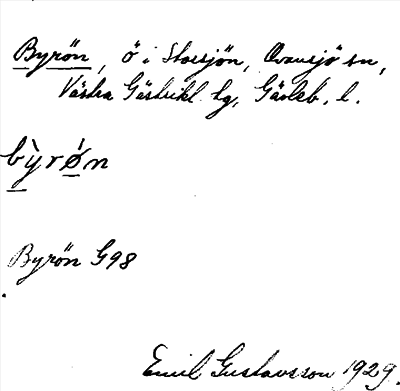 Byrön, ö i Storsjön, Ovansjö sn,
Västra Gästrikl. hg, Gävleb. l.
bỳrǿn
Byrön G98
Emil Gustavsson 1929.